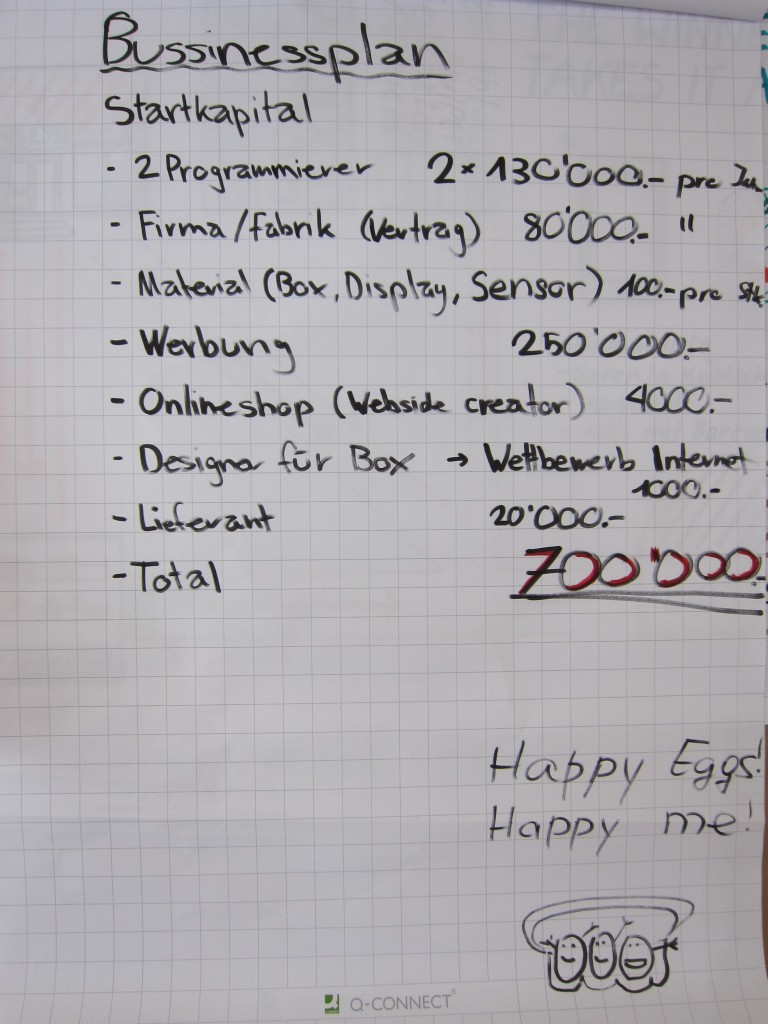 Bussinessplan
Startkapital
- 2 Programmierer 2 x 130'000.- pro
- Firma/Fabrik (Vertrag) 80'000.- "
- Material (Box, Display, Sensor) 100.- pro Stk
- Werbung 250'000.-
- Onlineshop (Webside creator) 4000.-
- Designa für Box → Wettbewerb Internet
1000.-
- Lieferant 20'000.-
- Total 700'000.-
Happy Eggs!
Happy me!
Q-CONNECT®